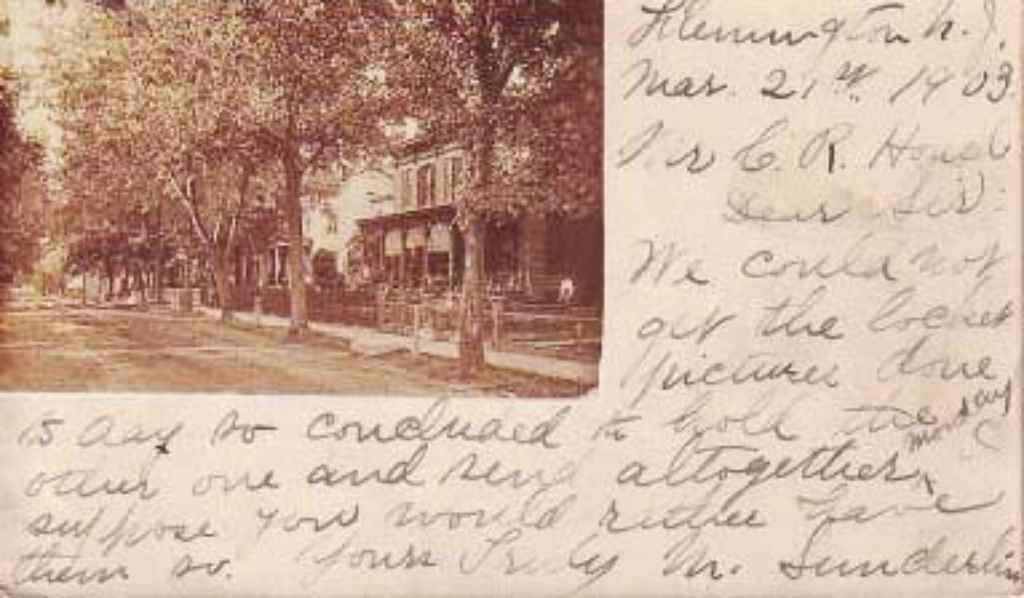 Flemington N. J.
Mar. 21st 1903
Mr C. R.
Dear Sir:
We could not
get the locket
pictures done
to day so concluded to hold the
other one and send altogether monday
suppose you would rather have
them so. Yours Truly M. Sunderlin